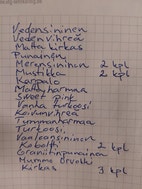 Vedensininen
Vedenvihreä
Matta kirkas
Punainen
Merensininen 2 kpl
Mustikka 2 kpl
Karpalo
Mattaharmaa
Sweet pink
Vanha turkoosi
Koivunvihreä
Tummanharmaa
Turkoosi
Vaaleansininen
Koboltti 2 kpl
Graniitinpunainen
Mummo orvokki
Kirkas 3 kpl